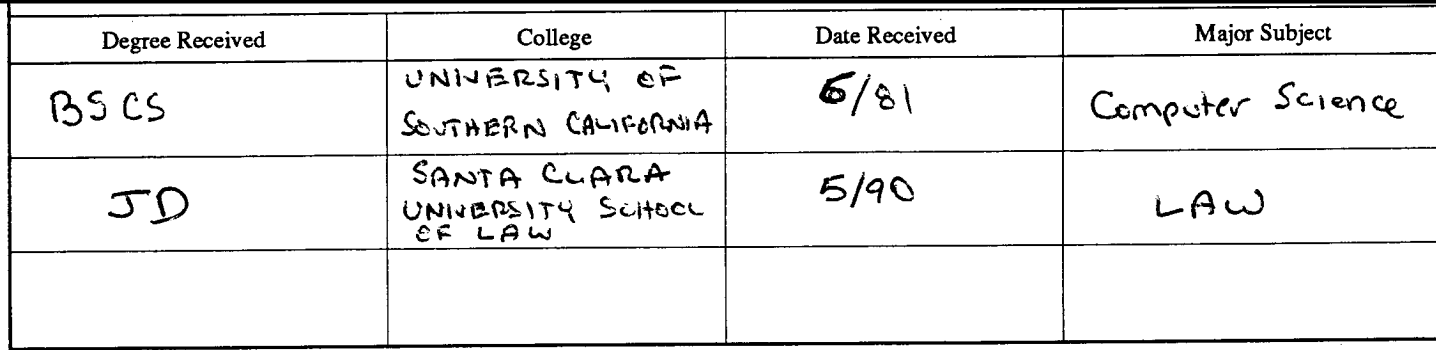 Degree Received College Date Received Major Subject
BSCS UNIVERSITY OF SOUTHERN CALIFORNIA 6/81 Computer Science
JD SANTA CLARA UNIVERSITY SCHOOL OF LAW 5/90 LAW